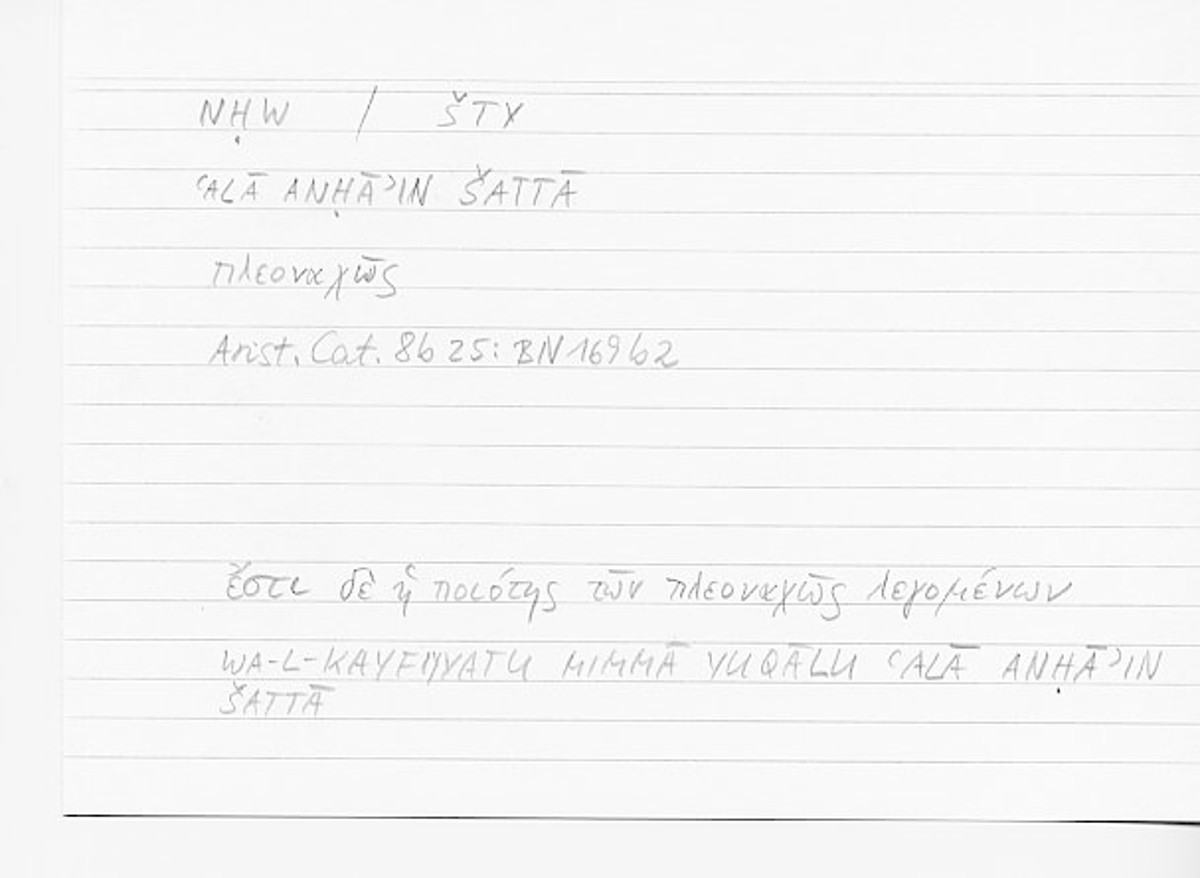 NḤW / ŠTY
ʿALĀ ANḤĀʾIN ŠATTĀ
πλεοναχῶς
Arist. Cat. 8b 25: BN 169b2
ἔστι δὲ ἡ ποιότης τῶν πλεοναχῶς λεγομένων
WA-L-KAYFIYYATU MIMMĀ YUQĀLU ʿALĀ ANḤĀʾIN
ŠATTĀ